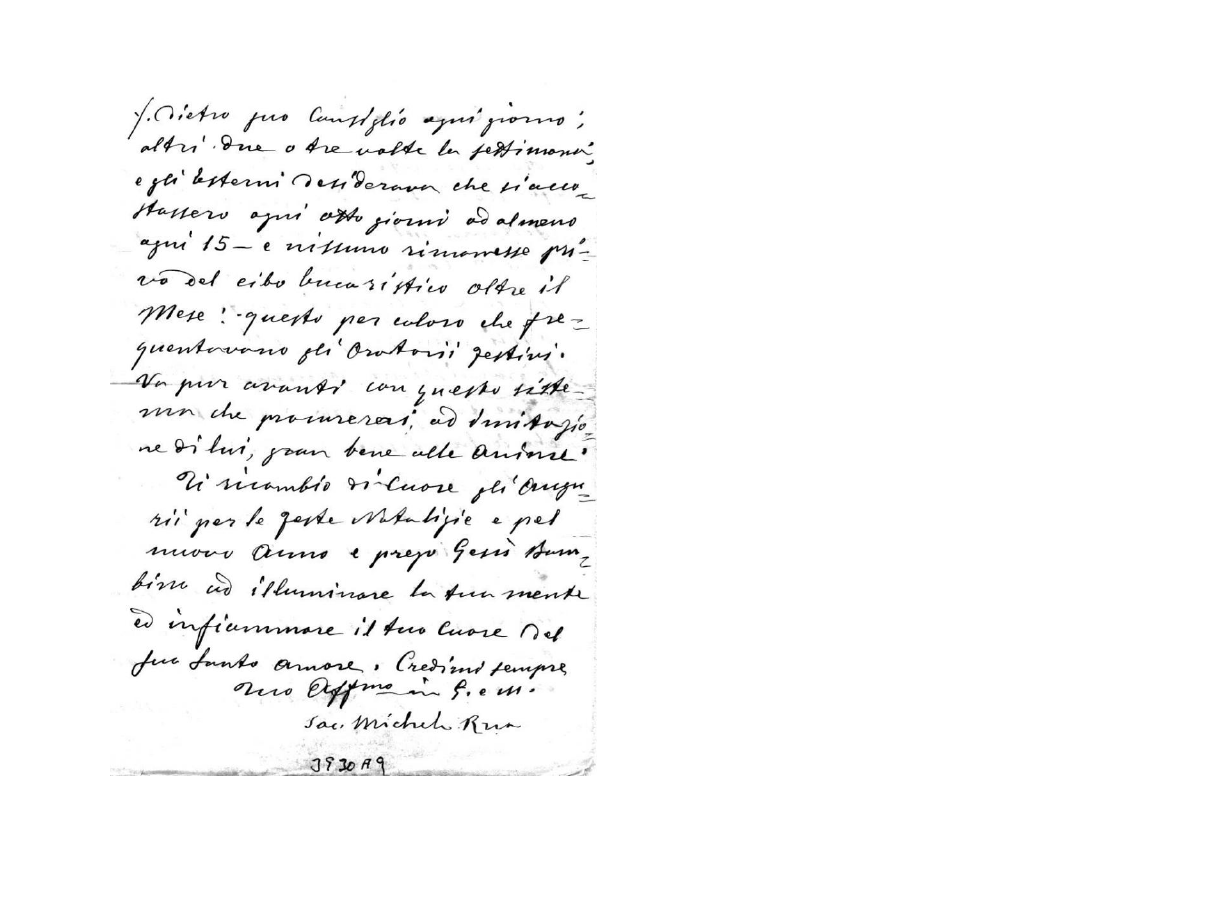 /. dietro suo Consiglio ogni giorno;
altri due o tre volte la settimana;
e gli Esterni desiderava che si acco=
stassero ogni otto giorni od almeno
ogni 15 – e nissuno rimanesse pri=
vo del cibo Eucaristico oltre il
Mese: questo per coloro che fre=
quentavano gli Oratorii festivi.
Va pur avanti con questo siste=
ma che procurerai, ad imitazio=
ne di lui, gran bene alle Anime.
Ti ricambio di Cuore gli Augu=
rii per le feste Natalizie e pel
nuovo Anno e prego Gesù Bam=
bino ad illuminare la tua mente
ed infiammare il tuo Cuore del
suo Santo Amore. Credimi sempre
Tuo Affmo in G. e M.
Sac. Michele Rua
3930 A9